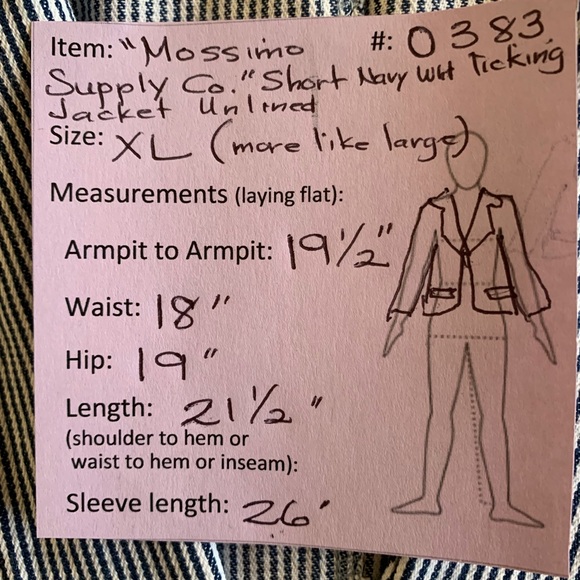 Item: "Mossimo #: 0383
Supply Co." Short Navy Wht Ticking
Jacket Unlined
Size: XL (more like large)
Measurements (laying flat):
Armpit to Armpit: 19½"
Waist: 18"
Hip: 19"
Length: 21½"
(shoulder to hem or
waist to hem or inseam):
Sleeve length: 26'